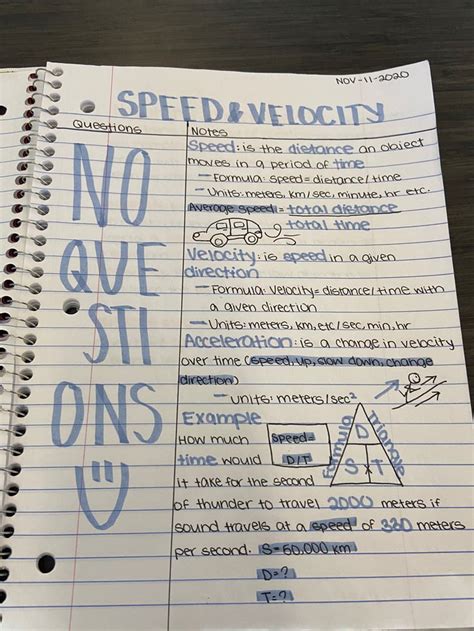 NOV-11-2020
SPEED & VELOCITY
Questions
Notes
NO
QUE
STI
ONS
Speed: is the distance an object
moves in a period of time
— Formula: speed = distance/time
— Units: meters, km/sec, minute, hr etc.
Average speed = total distance
total time
Velocity: is speed in a given
direction
— Formula: Velocity = distance/time with
a given direction
— Units: meters, km, etc/sec, min, hr
Acceleration: is a change in velocity
over time (speed, up, slow down, change
direction)
— units: meters/sec²
Example
How much
time would
it take for the second
of thunder to travel 2000 meters if
sound travels at a speed of 330 meters
per second. S = 60,000 km
D = ?
T = ?
Speed =
D/T
Formula Triangle
D
S x T